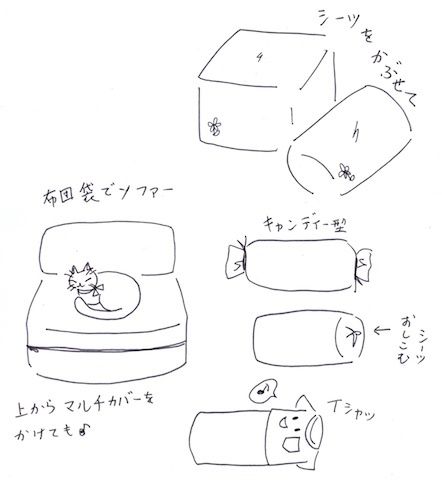 シーツを
かぶせて
布団袋でソファー
キャンディー型
シーツ
おしこむ
Tシャツ
上からマルチカバーを
かけても♪